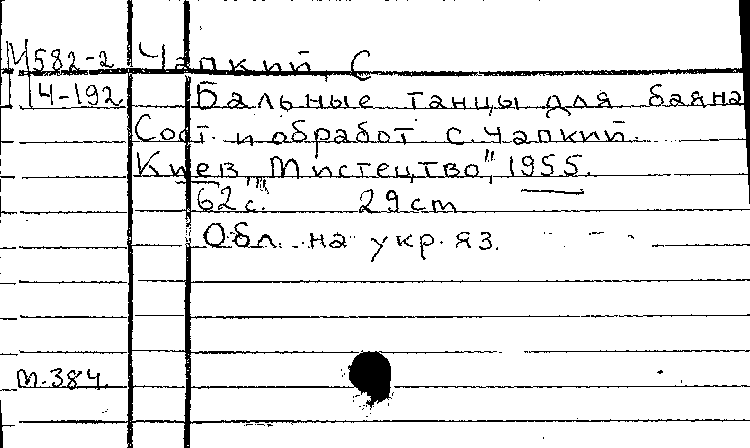 М 582-2 Чапкий, С
4-192 Бальные танцы для баяна
Сост. и обработ. С. Чапкий.
Киев, "Мистецтво", 1955.
62 с. 29 cm
Обл. на укр. яз.
т.384.